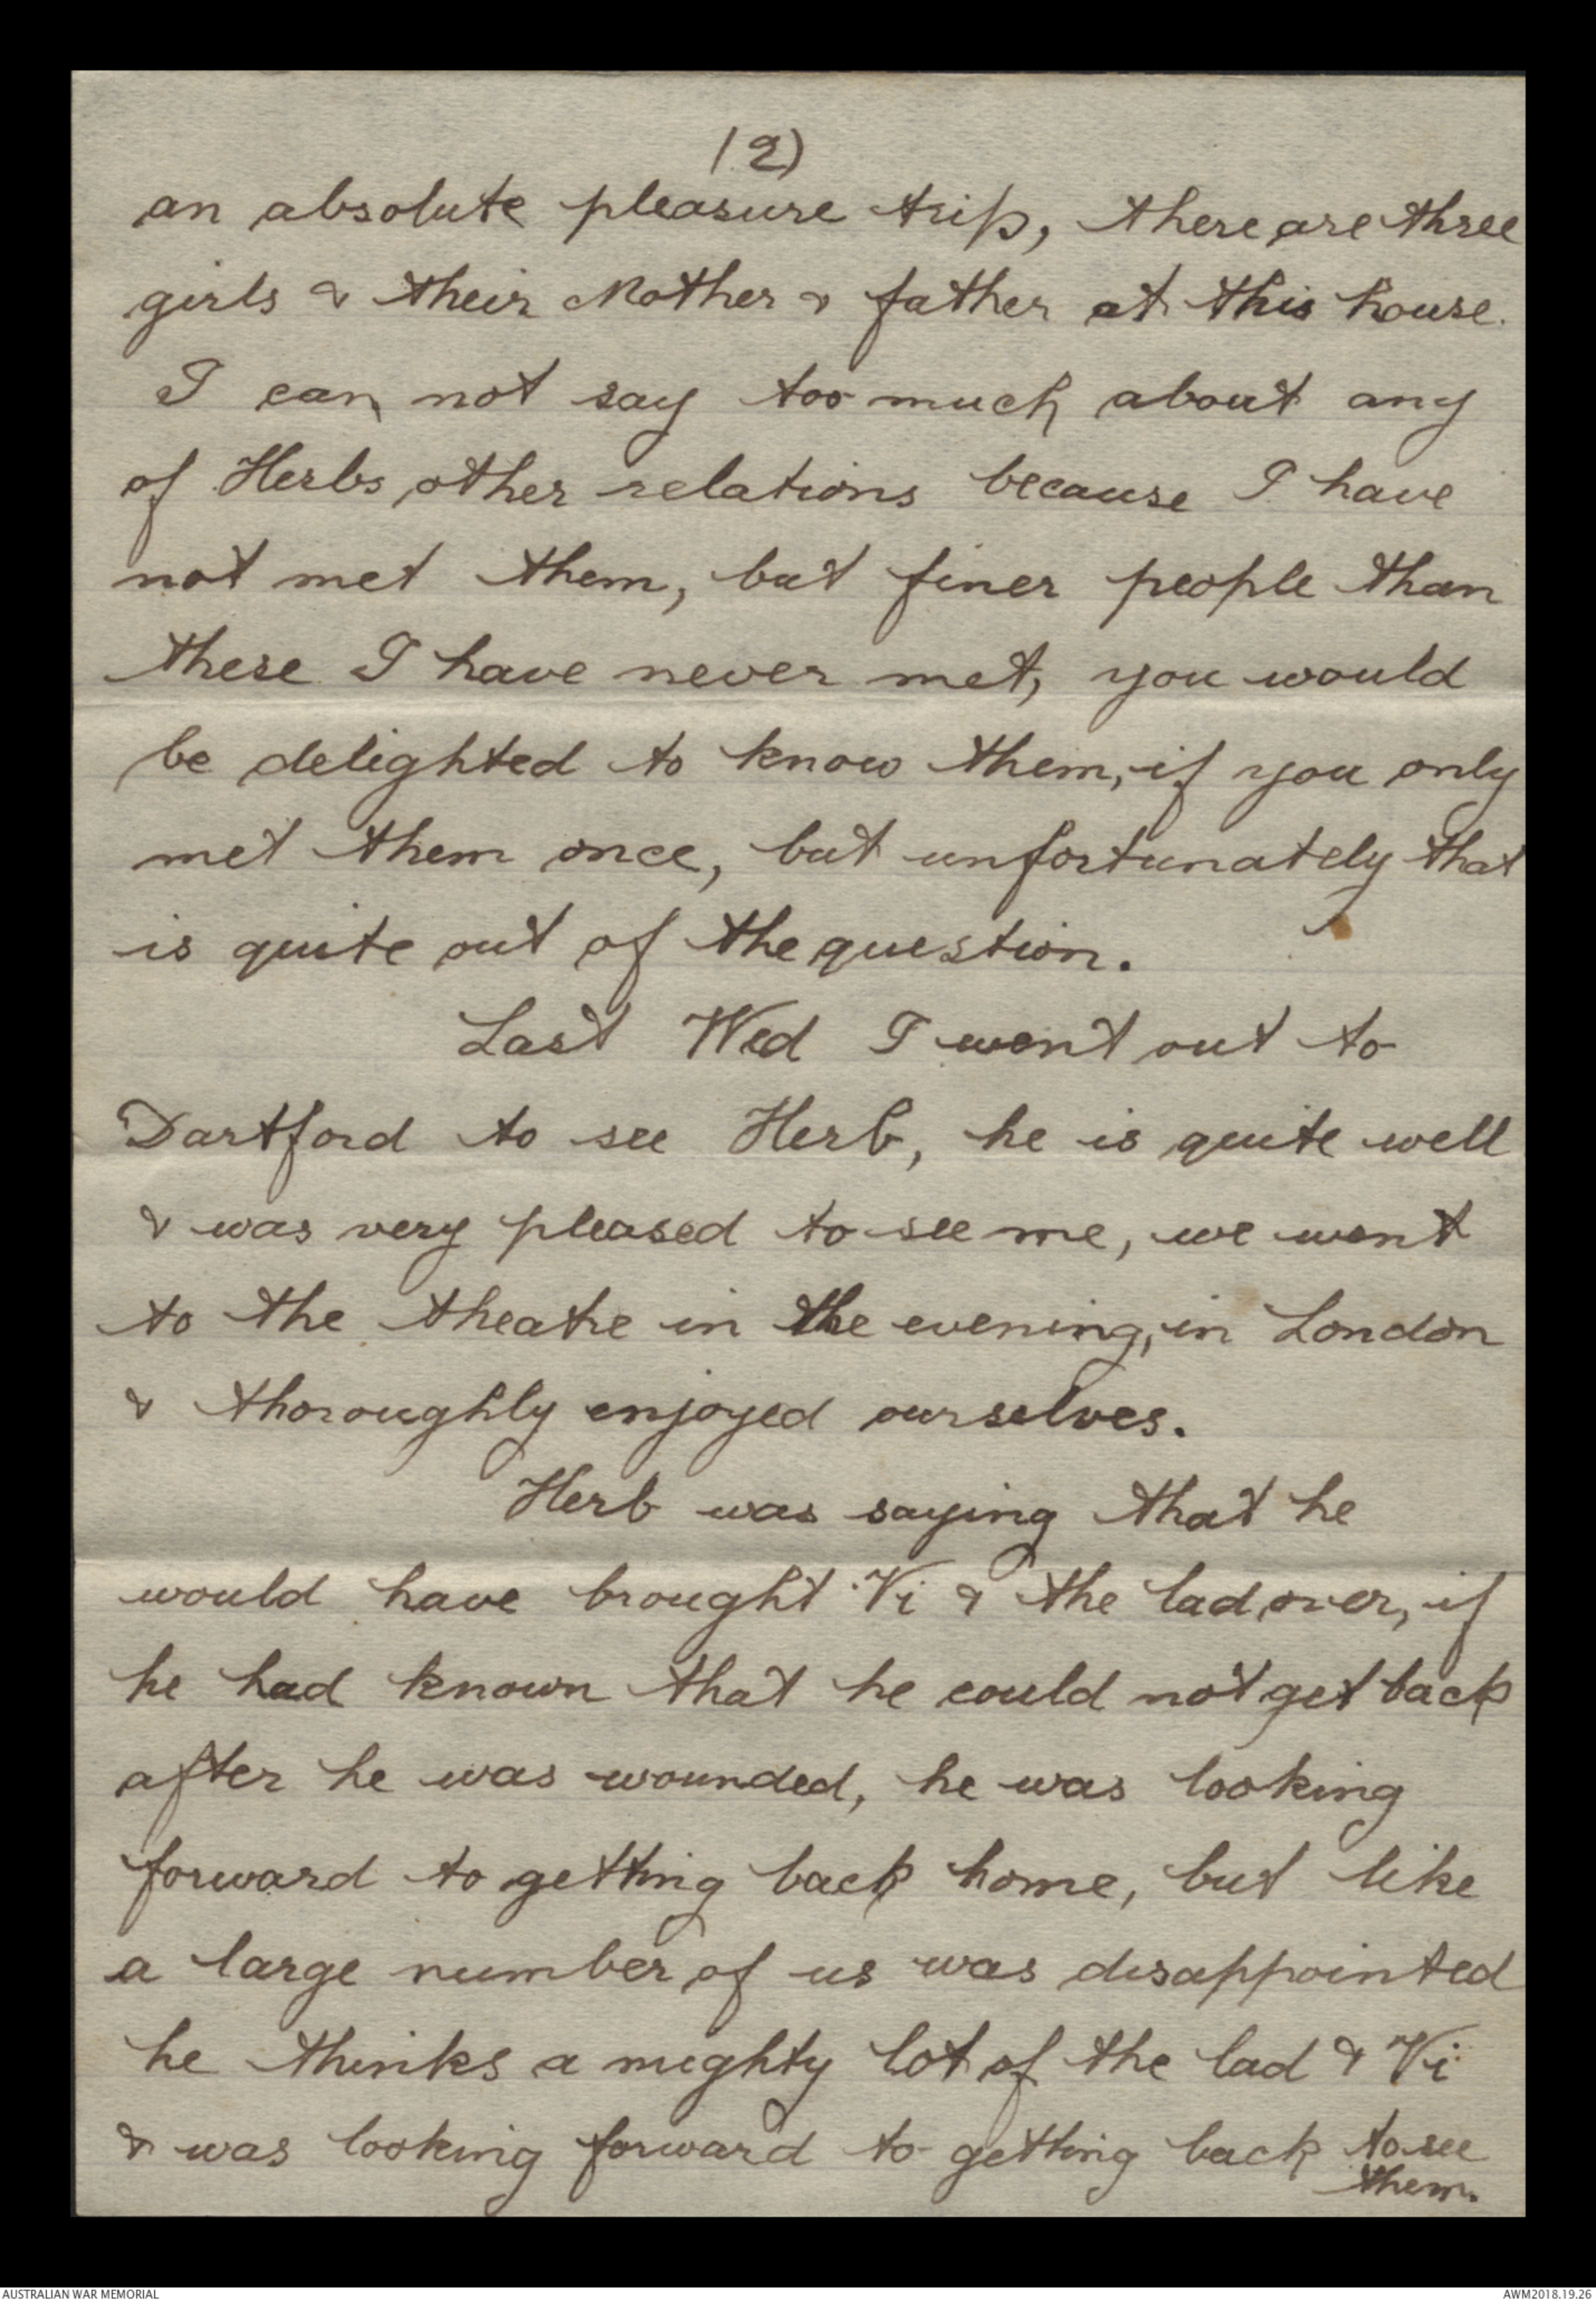 (2)
an absolute pleasure trip, there are three
girls & their Mother & father at this house.
I can not say too much about any
of Herbs other relations because I have
not met them, but finer people than
these I have never met, you would
be delighted to know them, if you only
met them once, but unfortunately that
is quite out of the question.
Last Wed I went out to
Dartford to see Herb, he is quite well
& was very pleased to see me, we went
to the theatre in the evening, in London
& thoroughly enjoyed ourselves.
Herb was saying that he
would have brought Vi & the lad over, if
he had known that he could not get back
after he was wounded, he was looking
forward to getting back home, but like
a large number of us was disappointed
he thinks a mighty lot of the lad & Vi
& was looking forward to getting back to see
them.
AUSTRALIAN WAR MEMORIAL
AWM2018.19.26